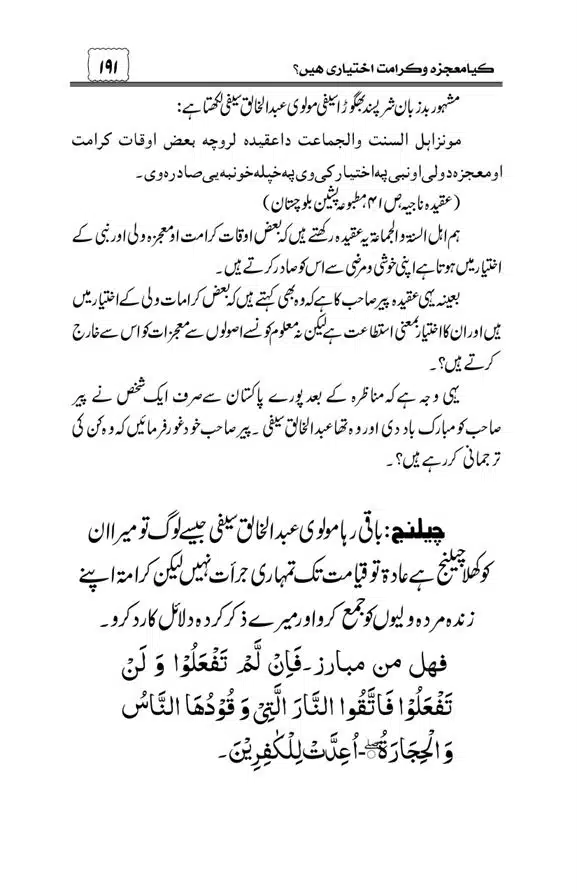 کیا معجزہ وکرامت اختیاری ھیں؟
۱۹۱
مشہور بدزبان شرپسند بھگوڑا سیفی مولوی عبدالخالق سیفی لکھتا ہے:
مونز اہل السنت والجماعت داعقیدہ لروچہ بعض اوقات کرامت
او معجزہ دولی او نبی پہ اختیار کی وی پہ خپلہ خونبہ یی صادرہ وی۔
(عقیدہ ناجیہ ص ۴۱ مطبوعہ پشین بلوچستان)
ہم اہل السنۃ والجماعۃ یہ عقیدہ رکھتے ہیں کہ بعض اوقات کرامت او معجزہ ولی اور نبی کے
اختیار میں ہوتا ہے اپنی خوشی و مرضی سے اس کو صادر کرتے ہیں۔
بعینہ یہی عقیدہ پیر صاحب کا ہے کہ وہ بھی کہتے ہیں کہ بعض کرامات ولی کے اختیار میں
ہیں اور ان کا اختیار بمعنی استطاعت ہے لیکن نہ معلوم کونسے اصولوں سے معجزات کو اس سے خارج
کرتے ہیں؟۔
یہی وجہ ہے کہ مناظرہ کے بعد پورے پاکستان سے صرف ایک شخص نے پیر
صاحب کو مبارک باد دی اور وہ تھا عبدالخالق سیفی۔ پیر صاحب خود غور فرمائیں کہ وہ کن کی
ترجمانی کر رہے ہیں؟۔
چیلنج: باقی رہا مولوی عبدالخالق سیفی جیسے لوگ تو میرا ان
کو کھلا چیلنج ہے عادۃ تو قیامت تک تمہاری جرأت نہیں لیکن کرامۃ اپنے
زندہ مردہ ولیوں کو جمع کرو اور میرے ذکر کردہ دلائل کا رد کرو۔
فھل من مبارز۔ فَاِنْ لَّمْ تَفْعَلُوْا وَ لَنْ
تَفْعَلُوْا فَاتَّقُوا النَّارَ الَّتِیْ وَ قُوْدُهَا النَّاسُ
وَ الْحِجَارَةُ ۚۖ-اُعِدَّتْ لِلْكٰفِرِیْنَ۔